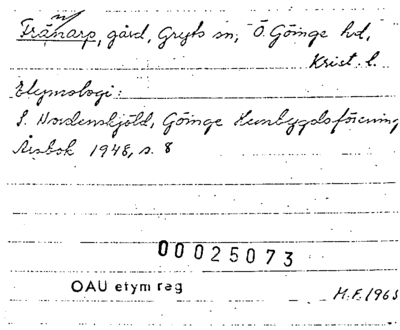 Fränarp, gård, Gryts sn, Ö. Göinge hd,
Krist. l.
Etymologi:
S. Nordenskjöld, Göinge Hembygdsförening
Årsbok 1948, s. 8
00025073
OAU etym reg
M.F. 1965